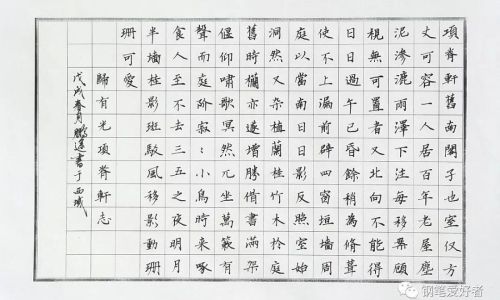 項脊軒舊南閣子也室仅方
丈可容一人居百年老屋塵
泥滲漉雨澤下注每移案顧
視無可置者又北向不能得
日日過午已昏餘稍為脩葺
使不上漏前辟四窗垣墙周
庭以當南日日影反照室始
洞然又杂植蘭桂竹木於庭
舊時欄亦遂增勝借書滿架
偃仰嘯歌冥然兀坐萬籟有
聲而庭阶寂：小鳥時来啄
食人至不去三五之夜明月
半墙桂影斑駁風移影動珊
珊可愛
歸有光項脊軒志
戊戌春月鵬遠書于西域
钢笔爱好者